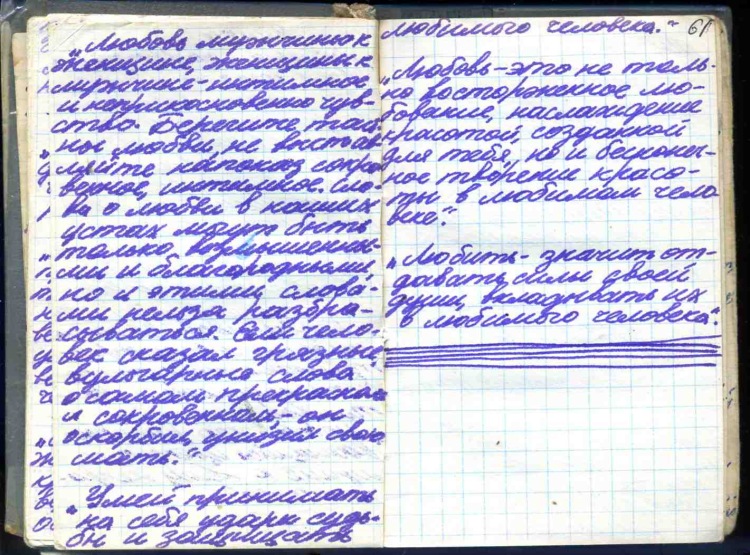 „Любовь мужчины к
женщине, женщины к
мужчине – интимное
и неприкосновенно чув-
ство. Берегите тай-
ны любви, не выстав
ляйте напоказ сокро
венное, интимное. Сло-
ва о любви в наших
устах могут быть
только возвышенны-
ми и благородными,
но и этими слова-
ми нельзя разбра-
сываться. Если чело-
век сказал грязные,
вульгарные слова
о самом прекрасном
и сокровенном, – он
оскорбил, унизил свою
мать."
„Умей принимать
на себя удары судь-
бы и защищать
любимого человека."
61
„Любовь – это не толь-
ко восторженное лю-
бование, наслаждение
красотой, созданной
для тебя, но и бесконеч-
ное творение красо-
ты в любимом чело
веке".
„Любить – значит от-
давать силы своей
души, вкладывать их
в любимого человека".